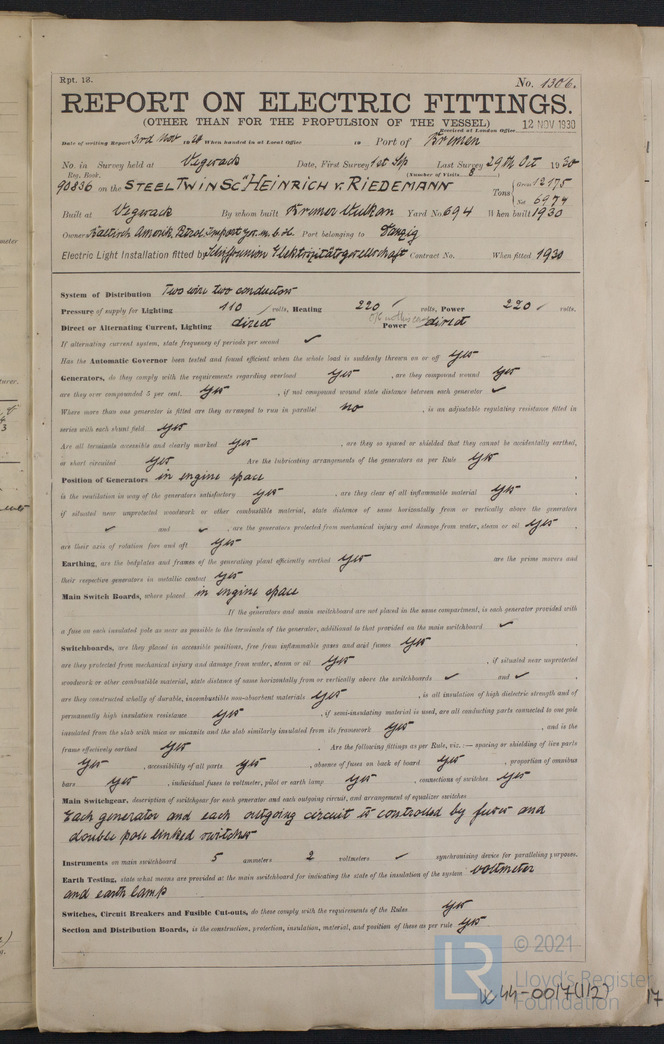 Rpt. 13.
No. 1306.
REPORT ON ELECTRIC FITTINGS.
(OTHER THAN FOR THE PROPULSION OF THE VESSEL)
Received at London Office 12 NOV 1930
Date of writing Report 3rd Nov 19 When handed in at Local Office 19 Port of Bremen
No. in Survey held at Vegesack Date, First Survey 1st Sep Last Survey 29th Oct 1930
Reg. Book. (Number of Visits 8
90836 on the STEEL TWIN SC "HEINRICH v. RIEDEMANN Tons { Gross 12175
Net 6974
Built at Vegesack By whom built Bremer Vulkan Yard No. 694 When built 1930
Owners Baltisch Amerik. Petrol. Import Ges. m. b. H. Port belonging to Danzig
Electric Light Installation fitted by Schiffsunion Elektrizitätsgesellschaft Contract No. When fitted 1930
System of Distribution Two wire two conductors
Pressure of supply for Lighting 110 volts, Heating 220 volts, Power 220 volts.
Direct or Alternating Current, Lighting direct Power direct
If alternating current system, state frequency of periods per second ✓
Has the Automatic Governor been tested and found efficient when the whole load is suddenly thrown on or off yes
Generators, do they comply with the requirements regarding overload yes, are they compound wound yes
are they over compounded 5 per cent. yes, if not compound wound state distance between each generator ✓
Where more than one generator is fitted are they arranged to run in parallel no, is an adjustable regulating resistance fitted in
series with each shunt field yes
Are all terminals accessible and clearly marked yes, are they so spaced or shielded that they cannot be accidentally earthed,
or short circuited yes Are the lubricating arrangements of the generators as per Rule yes
Position of Generators in engine space
is the ventilation in way of the generators satisfactory yes, are they clear of all inflammable material yes
if situated near unprotected woodwork or other combustible material, state distance of same horizontally from or vertically above the generators
✓ and ✓, are the generators protected from mechanical injury and damage from water, steam or oil yes,
are their axis of rotation fore and aft yes
Earthing, are the bedplates and frames of the generating plant efficiently earthed yes are the prime movers and
their respective generators in metallic contact yes
Main Switch Boards, where placed in engine space
If the generators and main switchboard are not placed in the same compartment, is each generator provided with
a fuse on each insulated pole as near as possible to the terminals of the generator, additional to that provided on the main switchboard ✓
Switchboards, are they placed in accessible positions, free from inflammable gases and acid fumes yes,
are they protected from mechanical injury and damage from water, steam or oil yes, if situated near unprotected
woodwork or other combustible material, state distance of same horizontally from or vertically above the switchboards ✓ and ✓,
are they constructed wholly of durable, incombustible non-absorbent materials yes, is all insulation of high dielectric strength and of
permanently high insulation resistance yes, if semi-insulating material is used, are all conducting parts connected to one pole
insulated from the slab with mica or micanite and the slab similarly insulated from its framework yes, and is the
frame effectively earthed yes. Are the following fittings as per Rule, viz.:— spacing or shielding of live parts
yes, accessibility of all parts yes, absence of fuses on back of board yes, proportion of omnibus
bars yes, individual fuses to voltmeter, pilot or earth lamp yes, connections of switches yes
Main Switchgear, description of switchgear for each generator and each outgoing circuit, and arrangement of equalizer switches
Each generator and each outgoing circuit is controlled by fuses and
double pole linked switches
Instruments on main switchboard 5 ammeters 2 voltmeters ✓ synchronising device for paralleling purposes.
Earth Testing, state what means are provided at the main switchboard for indicating the state of the insulation of the system voltmeter
and earth lamp
Switches, Circuit Breakers and Fusible Cut-outs, do these comply with the requirements of the Rules yes
Section and Distribution Boards, is the construction, protection, insulation, material, and position of these as per rule yes
LR © 2021
Lloyd's Register
Foundation
W44-0017(1/2)
17